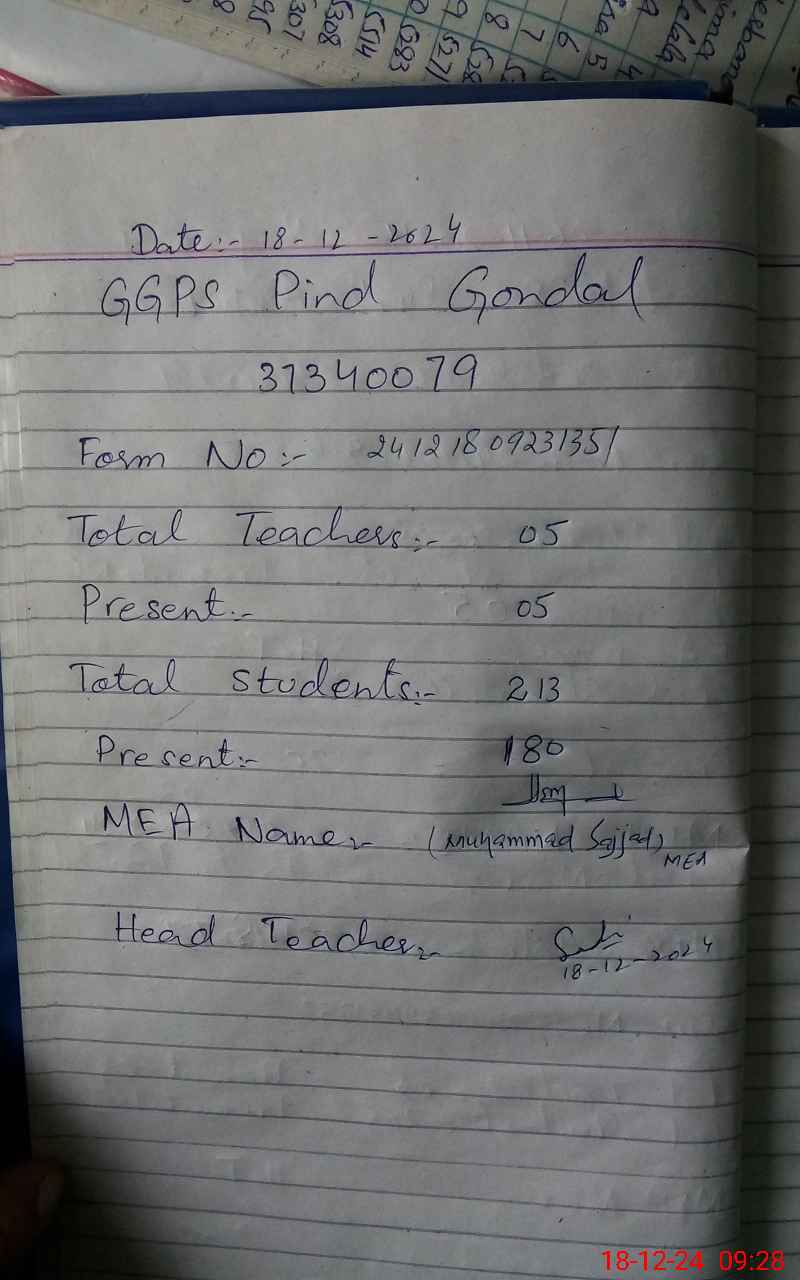 Date:- 18-12-2024
GGPS Pind Gondal
37340079
Form No:- 24121809231351
Total Teachers:- 05
Present:- 05
Total Students:- 213
Present:- 180
MEA Name:- (Muhammad Sajjad)
MEA
Head Teacher:-
18-12-2024
18-12-24 09:28